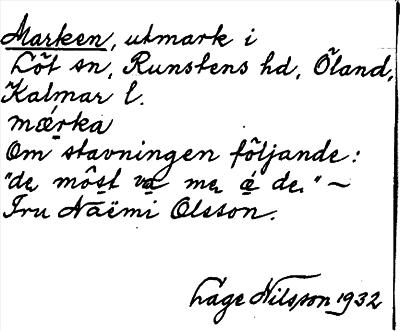 Marken, utmark i
Löt sn, Runstens hd, Öland,
Kalmar l.
mǽrka
Om stavningen följande:
"de möst va me é de." ~
Fru Naëmi Olsson.
Låge Nilsson 1932